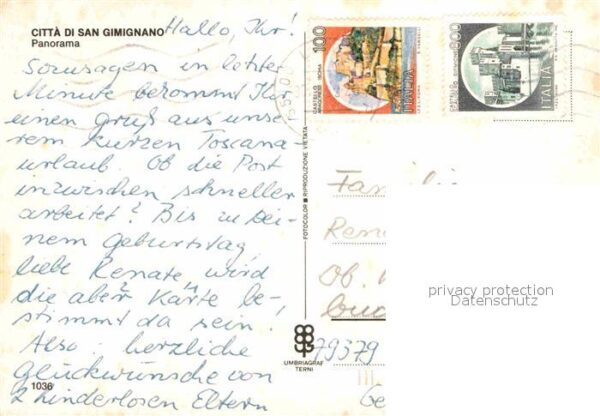 CITTÀ DI SAN GIMIGNANO
Panorama
Hallo, Ihr!
Sozusagen in letzter
Minute bekommt Ihr
einen Gruß aus unse-
rem kurzen Toscana-
urlaub. Ob die Post
inzwischen schneller
arbeitet? Bis zu Dei-
nem Geburtstag,
liebe Renate, wird
die aber Karte be-
stimmt da sein!
Also: herzliche
Glückwünsche von
2 kinderlosen Eltern
1036
FOTOCOLOR ■ RIPRODUZIONE VIETATA
UMBRIAGRAF
TERNI
100
ITALIA
ROMA
600
ITALIA
Fam
Ren
Ob.
79379
Ge
privacy protection
Datenschutz